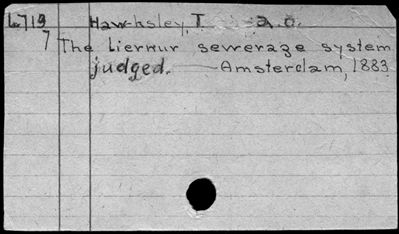 L719 Hawhsley, T. a.o.
7 The Liernur sewerage system
judged. — Amsterdam, 1883